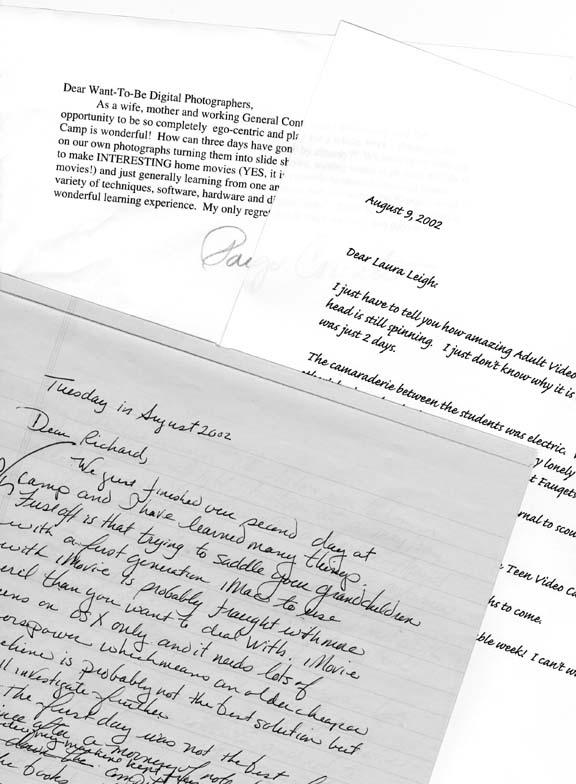 Dear Want-To-Be Digital Photographers,
As a wife, mother and working General Cont
opportunity to be so completely ego-centric and pla
Camp is wonderful! How can three days have gon
on our own photographs turning them into slide sh
to make INTERESTING home movies (YES, it i
movies!) and just generally learning from one an
variety of techniques, software, hardware and di
wonderful learning experience. My only regret
Paige
August 9, 2002
Dear Laura Leigh:
I just have to tell you how amazing Adult Video
head is still spinning. I just don't know why it is
was just 2 days.
The camaraderie between the students was electric.
y lonely
t Fauget
rnal to scou
Teen Video Ca
hs to come.
ble week! I can't wa
Tuesday in August 2002
Dear Richard,
We just finished our second day at
Camp and I have learned many things.
First off is that trying to saddle your grandchildren
with a first generation iMac to use
with iMovie is probably fraught with more
eril than you want to deal with. iMovie
ens on OSX only and it needs lots of
orspower which means an older cheaper
achine is probably not the best solution but
ll investigate further.
The first day was not the best
ince after a morning of
the books